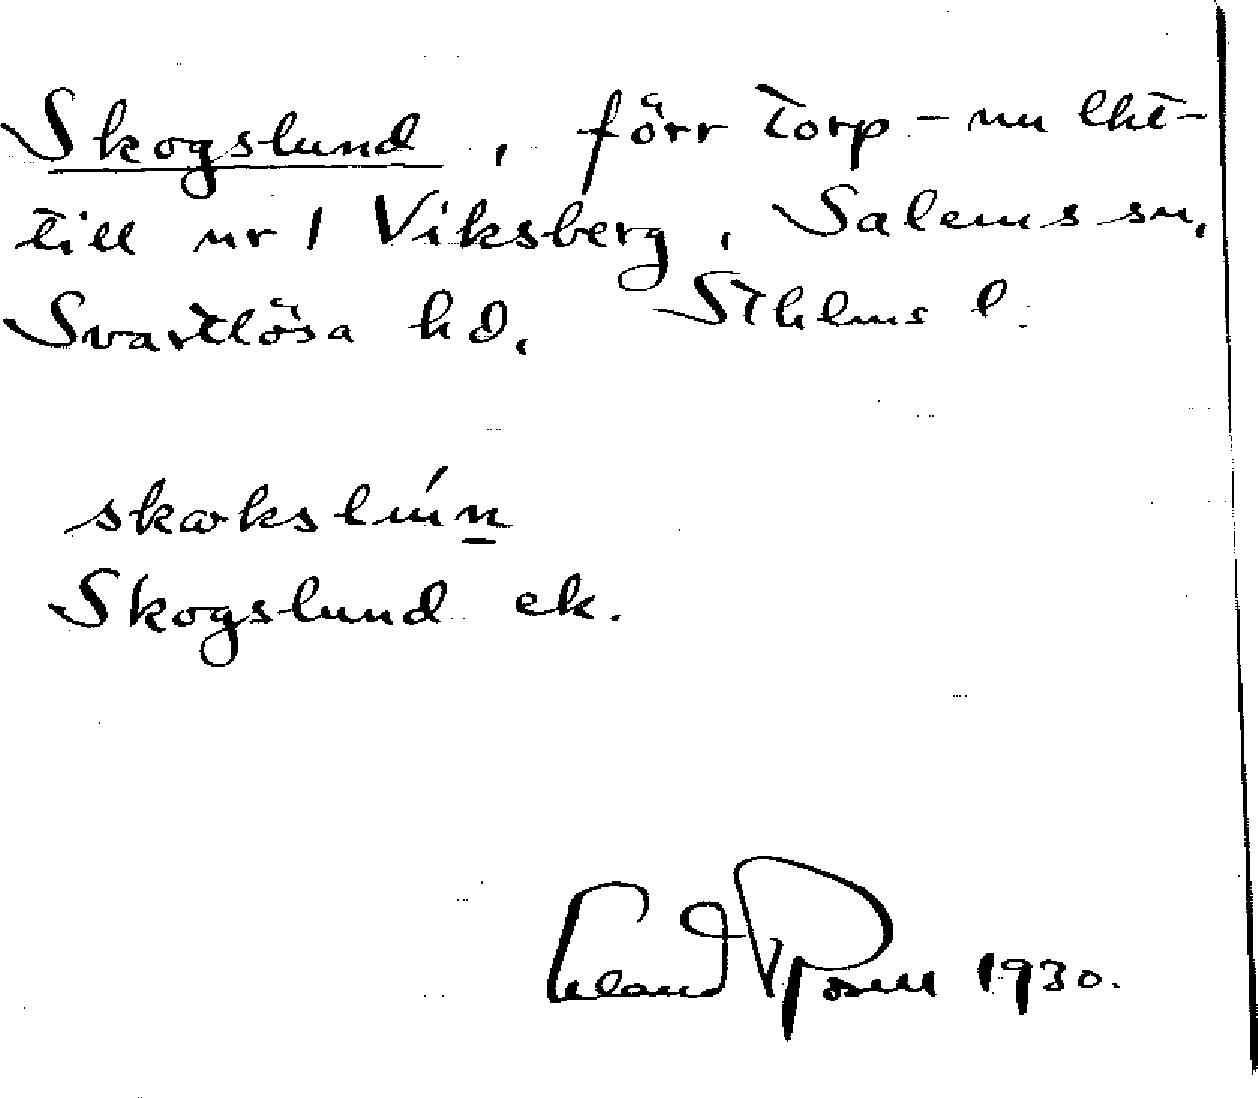 Skogslund, förr torp - nu lht -
till nr 1 Viksberg, Salems sn,
Svartlösa hd, Sthlms l.
skωkslún̲
Skogslund ek.
Erland Rosell 1930.